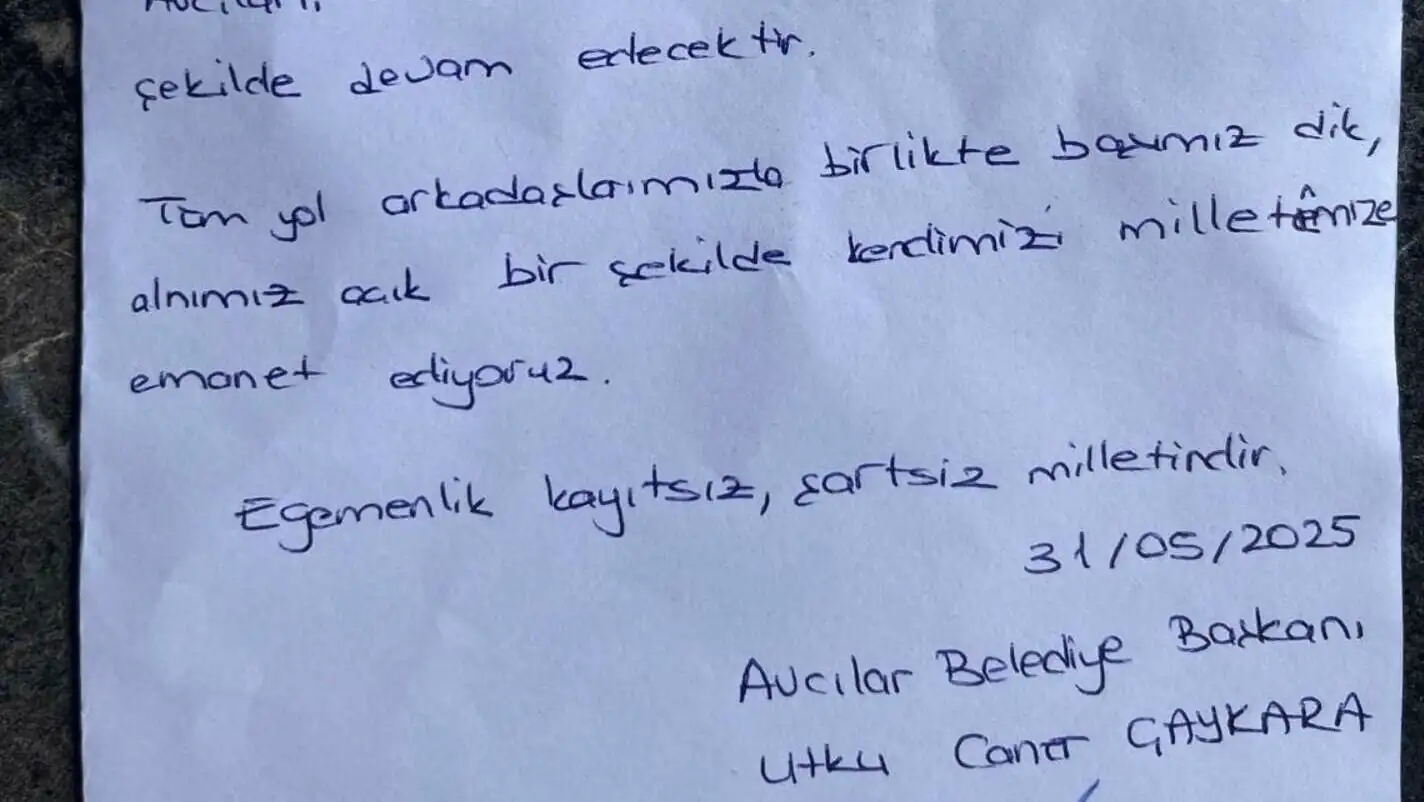 şekilde devam edecektir.
Tüm yol arkadaşlarımızla birlikte başımız dik,
alnımız açık bir şekilde kendimizi milletimize
emanet ediyoruz.
Egemenlik kayıtsız, şartsız milletindir.
31/05/2025
Avcılar Belediye Başkanı
Utku Caner ÇAYKARA